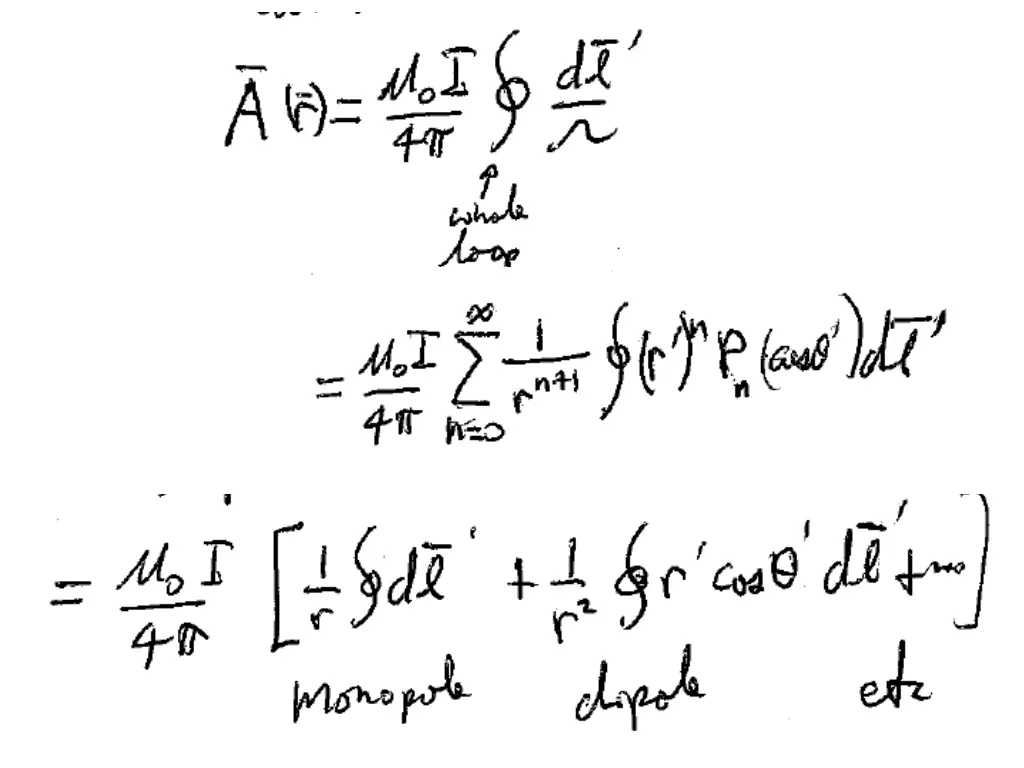 Ā(r̄) = μ₀I/4π ∮ dl̄′/𝓇
↑
whole
loop
= μ₀I/4π ∑_{n=0}^{∞} 1/r^{n+1} ∮(r′)ⁿ Pₙ(cosθ′)dl̄′
= μ₀I/4π [1/r ∮dl̄′ + 1/r² ∮r′cosθ′dl̄′ + ...]
monopole dipole etc